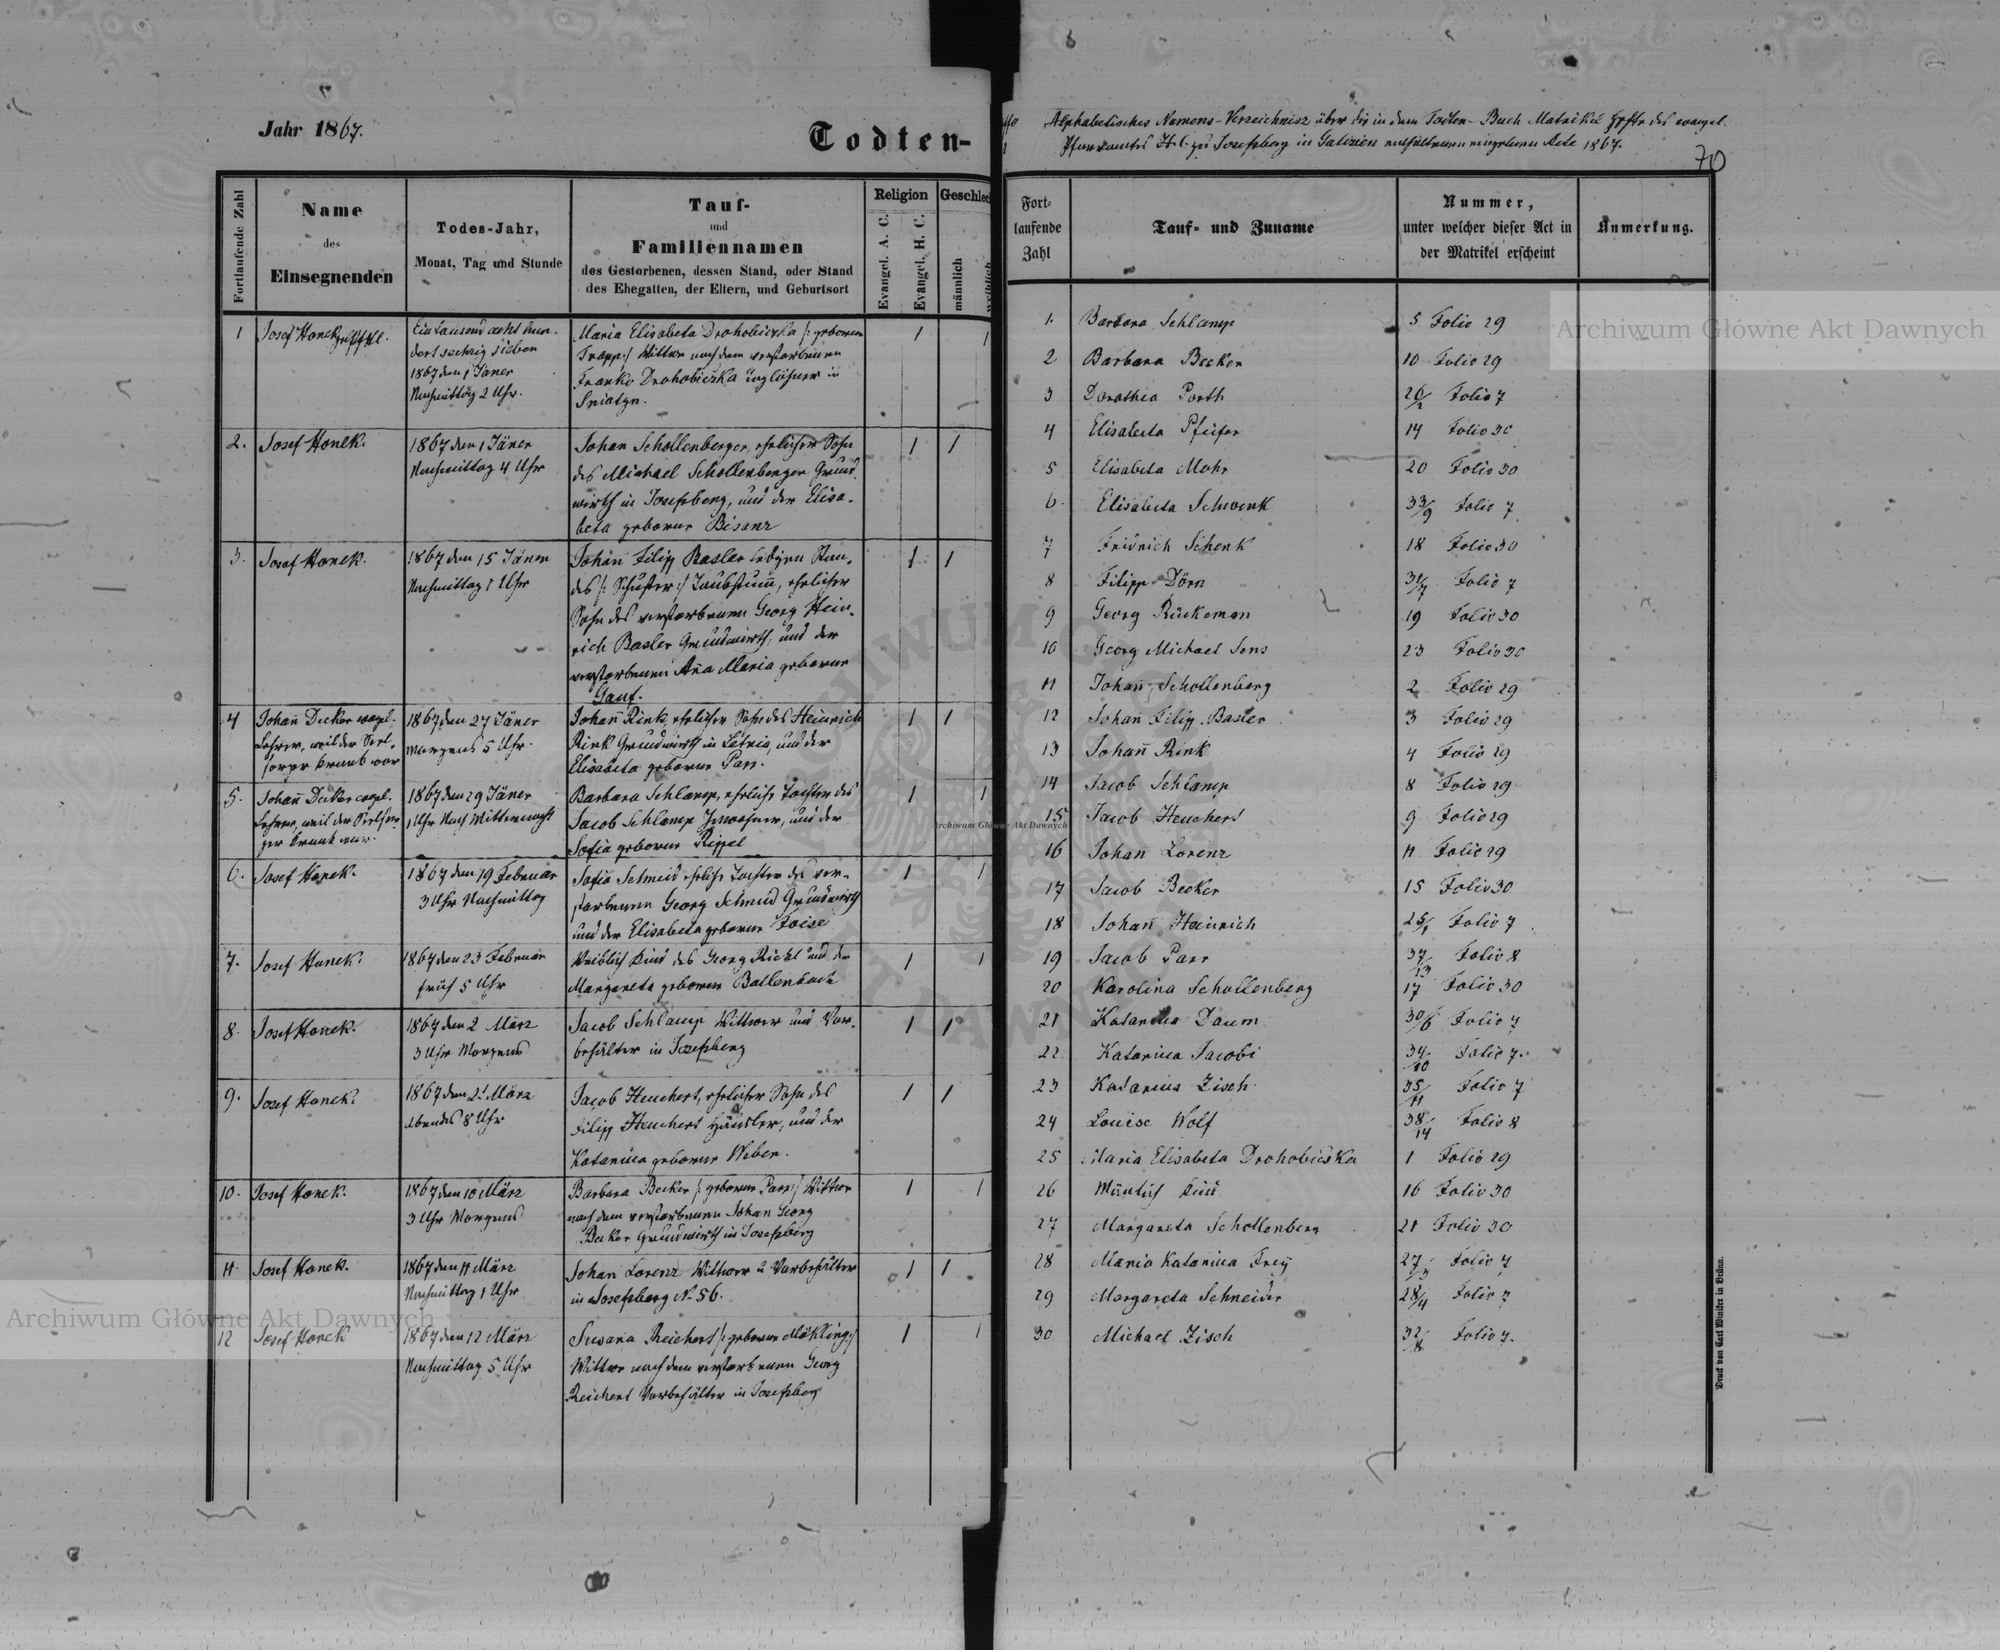 Jahr 1867.
Todten-
Fortlaufende Zahl
Name
des
Einsegnenden
Todes-Jahr,
Monat, Tag und Stunde
Tauf-
und
Familiennamen
des Gestorbenen, dessen Stand, oder Stand
des Ehegatten, der Eltern, und Geburtsort
Religion
Evangel. A. C.
Evangel. H. C.
Geschlech
männlich
weiblich
1 Josef Honek
Ein tausend acht hun-
dert sechzig sieben
1867 den 1 Jäner
Nachmittag 2 Uhr.
Maria Elisabeta Drohobiczka /: geborene
Trapp :/ Wittwe nach dem verstorbenen
Franko Drohobiczka Taglöhner in
Sniatyn.
2. Josef Honek.
1867 den 1 Jäner
Nachmittag 4 Uhr
Johan Schollenberger, ehelicher Sohn
des Michael Schollenberger Grund-
wirth in Josefsberg, und der Elisa-
beta geborne Bisanz
3. Josef Honek.
1867 den 15 Jäner
Nachmittag 1 Uhr
Johann Filipp Basler ledigen Stan-
des /: Schuster :/ Taubstumm, ehelicher
Sohn des verstorbenen Georg Hein-
rich Basler Grundwirth, und der
verstorbenen Anna Maria geborne
4 Johann Decker evagl.
Lehrer, weil der Seel-
sorger krank war
1867 den 27 Jäner
Morgens 5 Uhr.
Johann Rink, ehelicher Sohn des Heinrich
Rink Grundwirth in Letnia, und der
Elisabeta geborne Parr.
5. Johann Decker evagl.
Lehrer, weil der Seelsor-
ger krank war.
1867 den 29 Jäner
1 Uhr Nach Mitternacht
Barbara Schlamp, eheliche Tochter des
Jacob Schlamp Inwohner, und der
Sofia geborne Rippel
6. Josef Honek.
1867 den 19 Februar
3 Uhr Nachmittag
Sofia Schmid eheliche Tochter des ver-
storbenen Georg Schmid Grundwirth
und der Elisabeta geborne
7. Josef Honek.
1867 den 23 Februar
früh 5 Uhr
Weiblich Kind des Georg Rickl und der
Margareta geborne Ballenbach
8. Josef Honek.
1867 den 2 März
3 Uhr Morgens
Jacob Schlamp Wittwer und Vor-
behälter in Josefsberg
9. Josef Honek.
1867 den 2 März
Abends 8 Uhr
Jacob Heuchert, ehelicher Sohn des
Filipp Heuchert Häusler, und der
Katarina geborne Weber.
10. Josef Honek.
1867 den 10 März
3 Uhr Morgens
Barbara Becker /: geborne Parr :/ Wittwe
nach dem verstorbenen Johan Georg
Becker Grundwirth in Josefsberg
11. Josef Honek.
1867 den 11 März
Nachmittag 1 Uhr
Johan Lorenz Wittwer u Vorbehälter
in Josefsberg No 56.
12 Josef Honek
1867 den 12 März
Nachmittag 5 Uhr
Susana Reichert /: geborne Mökling :/
Wittwe nach dem verstorbenen Georg
Reichert Vorbehälter in Josefsberg
Alphabetisches Namens-Verzeichniss über die in dem Todten-Buch Matrikel des evangel.
Pfarramtes H. C. zu Josefsberg in Galizien enthaltenen Acte 1867.
70
Fort-
laufende
Zahl
Tauf- und Zuname
Nummer,
unter welcher dieser Act in
der Matrikel erscheint
Anmerkung.
1. Barbara Schlamp 5 Folio 29
2 Barbara Becker 10 Folio 29
3 Dorothea Porth 26/2 Folio 7
4 Elisabeta Pfeifer 14 Folio 30
5 Elisabeta Mohr 20 Folio 30
6. Elisabeta Schwenk 33/9 Folio 7
7 Fridrich Schenk 18 Folio 30
8 Filipp Dörn 31/7 Folio 7
9 Georg Rückeman 19 Folio 30
10 Georg Michael Sens 23 Folio 30
11 Johann Schollenberg 2 Folio 29
12 Johann Filipp Basler 3 Folio 29
13 Johann Rink 4 Folio 29
14 Jacob Schlamp 8 Folio 29
15 Jacob Heuchert 9 Folio 29
16 Johan Lorenz 11 Folio 29
17 Jacob Becker 15 Folio 30
18 Johann Heinrich 25/1 Folio 7
19 Jacob Parr 37/13 Folio 8
20 Karolina Schollenberg 17 Folio 30
21 Katarina Daum 30/6 Folio 7
22 Katarina Jacobi 34/10 Folio 7.
23 Katarina Zisch 35/11 Folio 7
24 Louise Wolf 38/14 Folio 8
25 Maria Elisabeta Drohobiczka 1 Folio 29
26 Mänlich Kind 16 Folio 30
27 Margareta Schollenberg 21 Folio 30
28 Maria Katarina Frey 27/3 Folio 7
29 Margareta Schneider 28/4 Folio 7
30 Michael Zisch 32/8 Folio 7.
Druck von Carl Winiker in Brünn.
Archiwum Główne Akt Dawnych
Archiwum Główne Akt Dawnych
Archiwum Główne Akt Dawnych